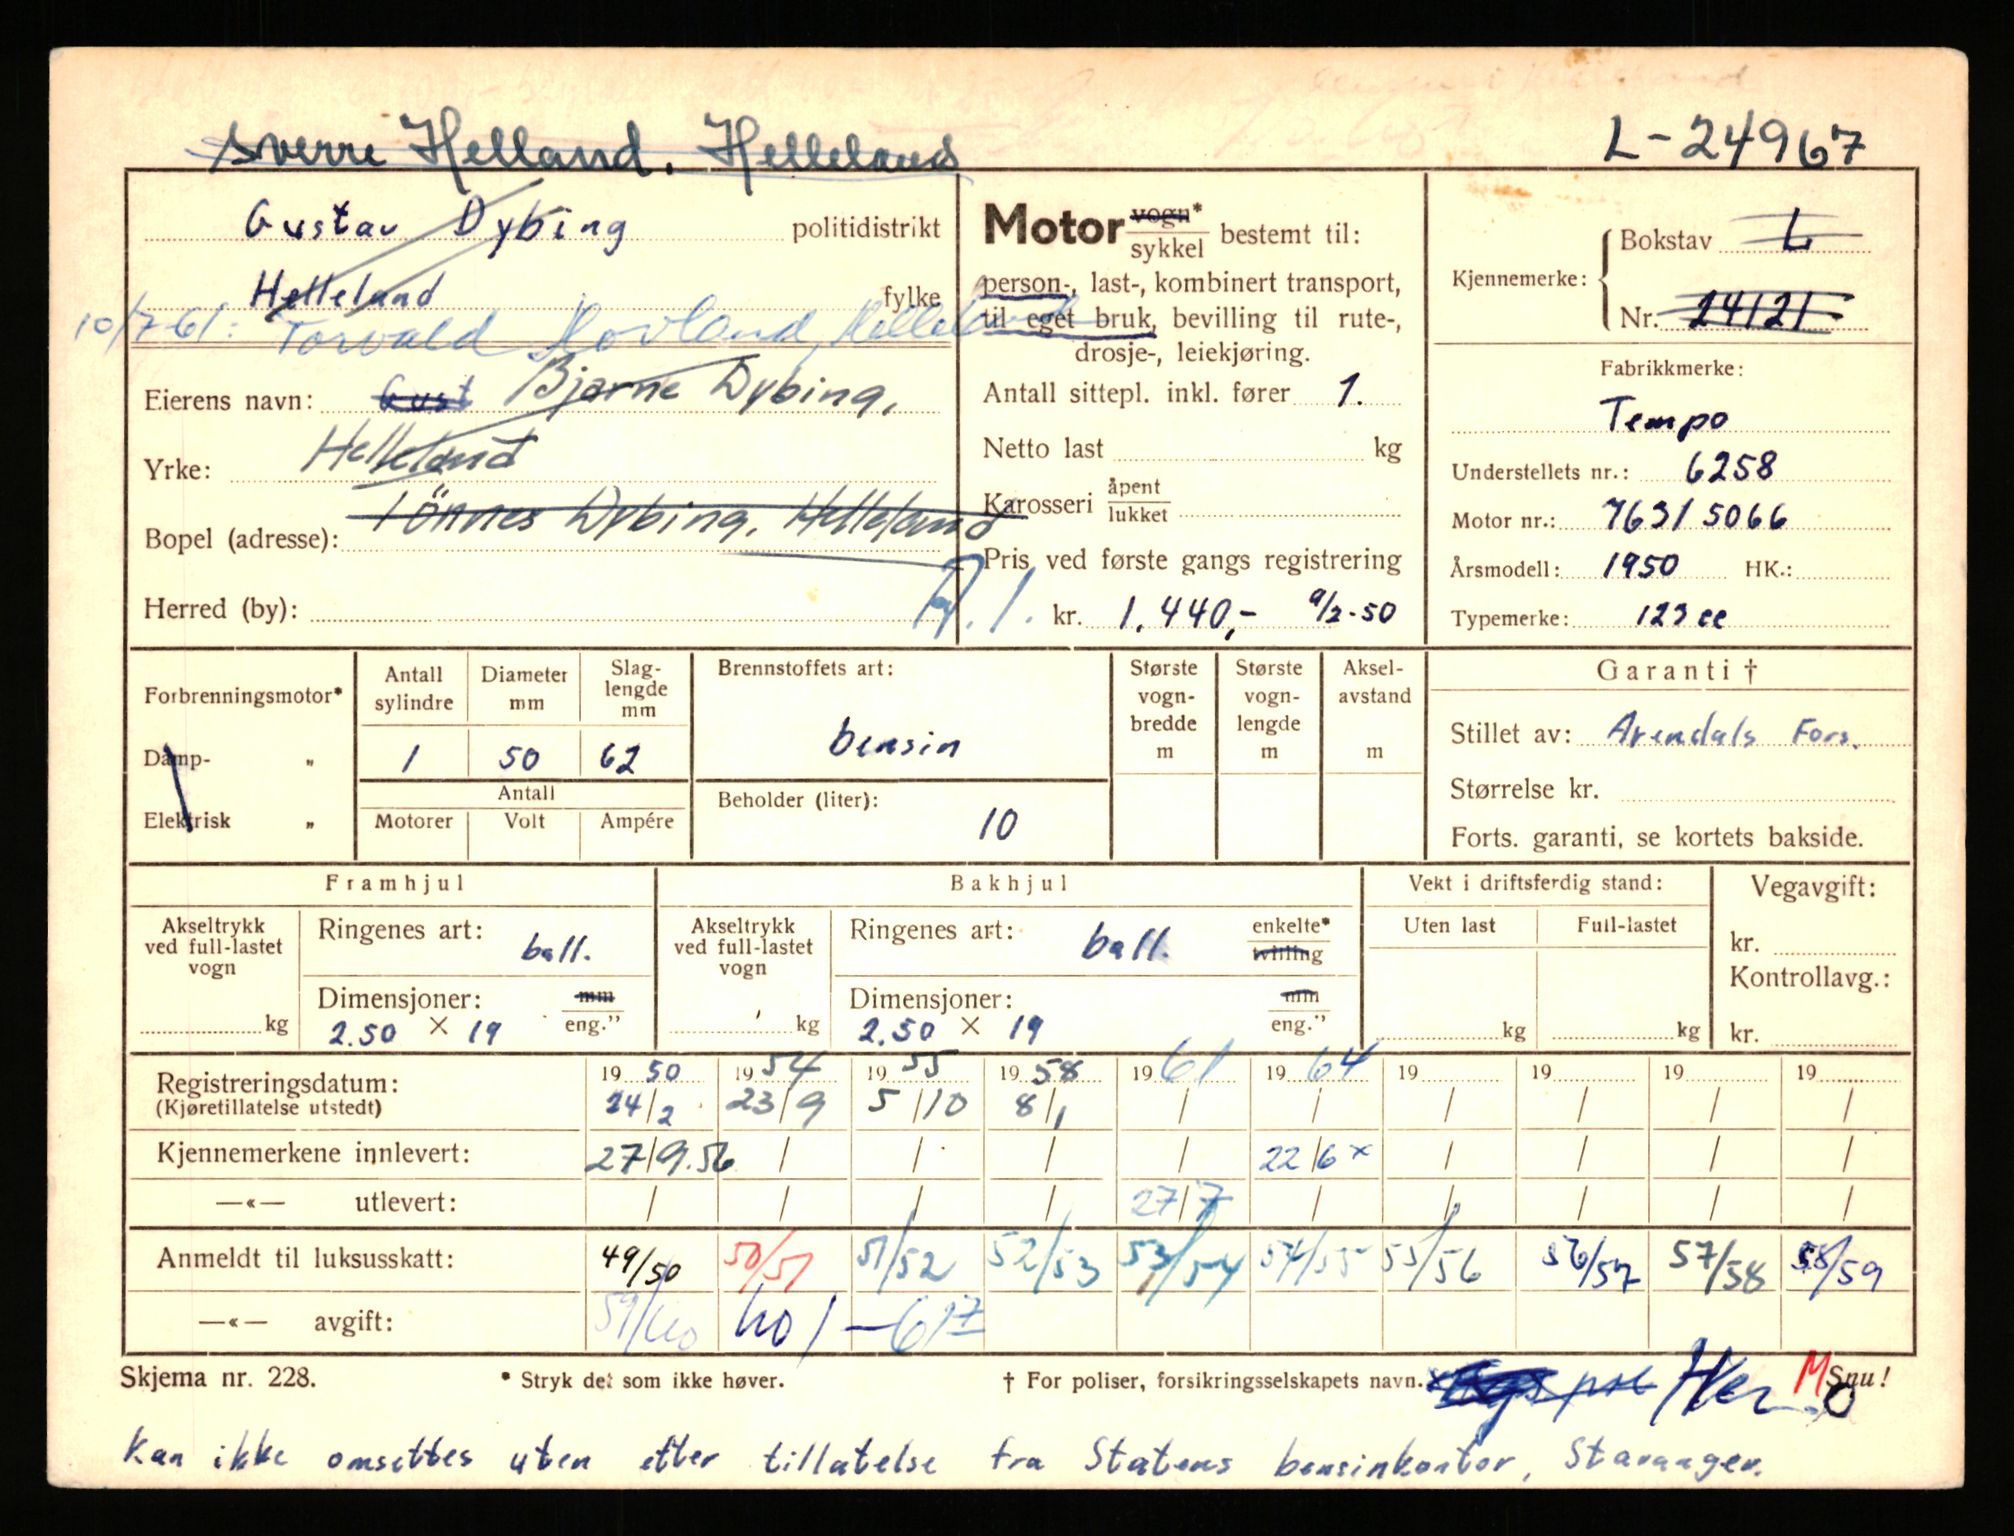 Sverre Helland. Helleland
L-24967
Gustav Dybing politidistrikt
Helleland fylke
10/7-61: Torvald Hovland, Helleland
Eierens navn: Gust Bjarne Dybing,
Yrke: Helleland
Bopel (adresse): Tönnes Dybing, Helleland
Herred (by):
Motor vogn*
sykkel bestemt til:
person-, last-, kombinert transport,
til eget bruk, bevilling til rute-,
drosje-, leiekjøring.
Antall sittepl. inkl. fører 1.
Netto last kg
Karosseri åpent
lukket
Pris ved første gangs registrering
kr. 1.440,- 9/2-50
Kjennemerke:
Bokstav L
Nr. 24121
Fabrikkmerke:
Tempo
Understellets nr.: 6258
Motor nr.: 76315066
Årsmodell: 1950 HK.:
Typemerke: 123 ee
Forbrenningsmotor*
Damp- „
Elektrisk „
Antall sylindre
Diameter mm
Slag-lengde mm
1 50 62
Antall
Motorer Volt Ampére
Brennstoffets art:
bensin
Beholder (liter):
10
Største vogn-bredde m
Største vogn-lengde m
Aksel-avstand m
Garanti †
Stillet av: Arendals Fors.
Størrelse kr.
Forts. garanti, se kortets bakside.
Framhjul
Akseltrykk ved full-lastet vogn
kg
Ringenes art: ball.
Dimensjoner: mm
2.50 × 19 eng."
Bakhjul
Akseltrykk ved full-lastet vogn
kg
Ringenes art: ball. enkelte*
tvilling
Dimensjoner: mm
2.50 × 19 eng."
Vekt i driftsferdig stand:
Uten last Full-lastet
kg kg
Vegavgift:
kr.
Kontrollavg.:
kr.
Registreringsdatum: 19 50 19 54 19 55 19 58 19 61 19 64 19 19 19 19
(Kjøretillatelse utstedt) 24/2 23/9 5/10 8/1 / / / / / /
Kjennemerkene innlevert: 27/9.56 / / / / 22/6 x / / / /
—«— utlevert: / / / / 27/7 / / / / /
Anmeldt til luksusskatt: 49/50 50/51 51/52 52/53 53/54 54/55 55/56 56/57 57/58 58/59
—«— avgift: 59/60 60/-61
Skjema nr. 228.
* Stryk det som ikke høver.
† For poliser, forsikringsselskapets navn.
M Snu!
Kan ikke omsettes uten etter tillatelse fra Statens bensinkontor, Stavanger.